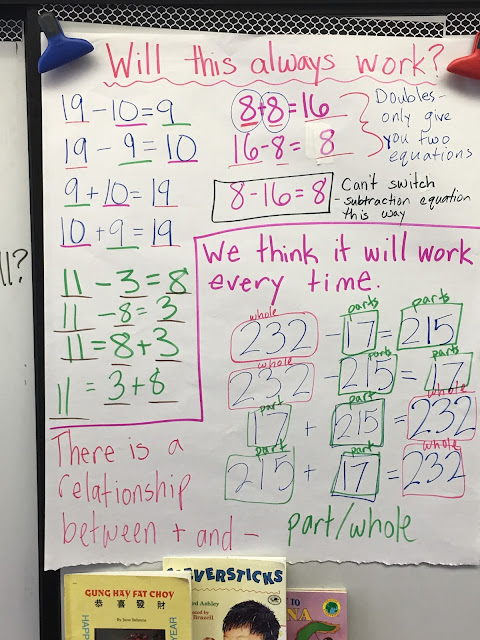 Will this always work?
19 - 10 = 9
19 - 9 = 10
9 + 10 = 19
10 + 9 = 19
8 + 8 = 16
16 - 8 = 8
Doubles-
only give
you two
equations
8 - 16 = 8
Can't switch
- subtraction equation
this way
11 - 3 = 8
11 - 8 = 3
11 = 8 + 3
11 = 3 + 8
We think it will work
every time.
whole parts parts
232 - 17 = 215
whole parts
232 - 215 = 17
part part whole
17 + 215 = 232
part part whole
215 + 17 = 232
There is a
relationship
between + and -
part/whole
ll?
GUNG HAY FAT CHOY
恭喜發財
By June Behrens
HAPPY
YEAR
EVERSTICKS
rd Ashley
Brazell
TO
NA